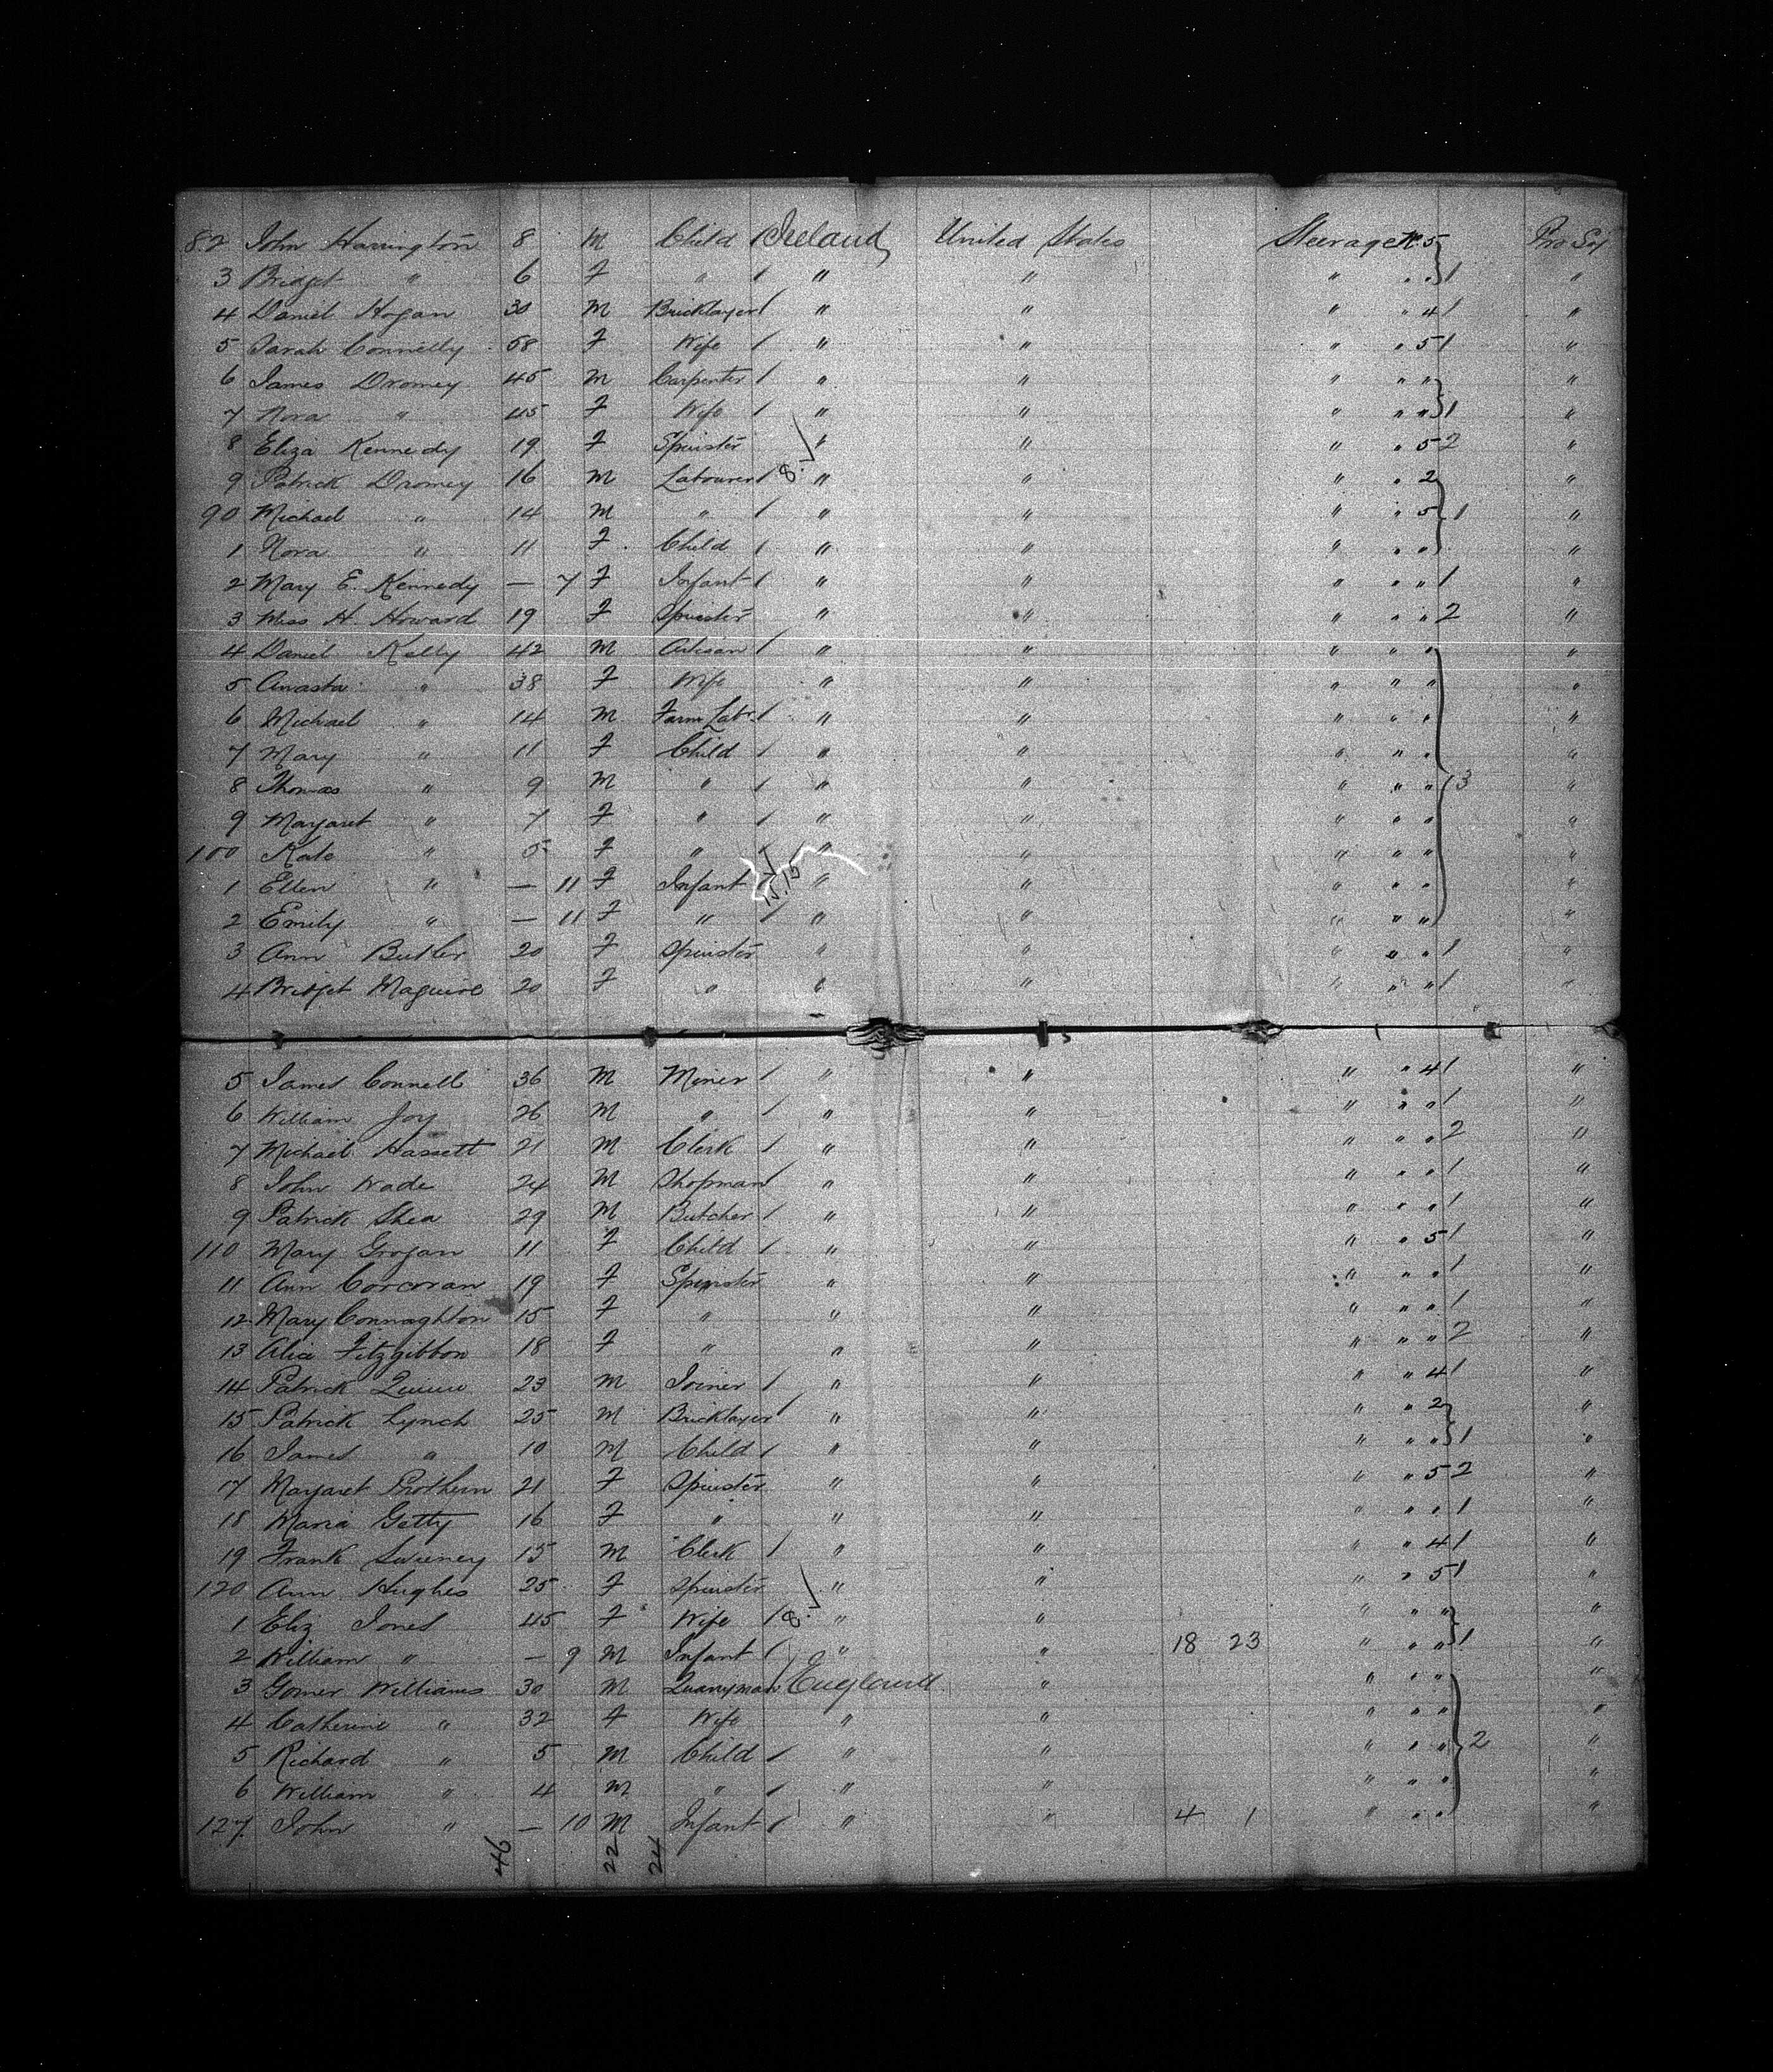 82 John Harrington 8 M Child / Ireland United States Steerage No. 5 Pro Sej
3 Bridget " 6 F " / " " " " " 1 "
4 Daniel Hogan 30 M Bricklayer / " " " " 4 1 "
5 Sarah Connelly 58 F Wife / " " " " 5 1 "
6 James Dromey 45 M Carpenter / " " " " " "
7 Nora " 45 F Wife / " " " " " 1 "
8 Eliza Kennedy 19 F Spinster " " " " 5 2 "
9 Patrick Dromey 16 M Labourer / 8. " " " " 2 "
90 Michael " 14 M " / " " " " 5 1 "
1 Nora " 11 F Child / " " " " " "
2 Mary E. Kennedy — 7 F Infant / " " " " " 1 "
3 Miss H. Howard 19 F Spinster " " " " " 2 "
4 Daniel Kelly 42 M Artisan / " " " " " "
5 Anasta " 38 F Wife " " " " " "
6 Michael " 14 M Farm Labr. / " " " " " "
7 Mary " 11 F Child / " " " " " "
8 Thomas " 9 M " / " " " " " 3 "
9 Margaret " 7 F " / " " " " " "
100 Kate " 5 F " / " " " " " "
1 Ellen " — 11 F Infant / 15.15 " " " " " "
2 Emily " — 11 F " / " " " " " "
3 Ann Butler 20 F Spinster " " " " " 1 "
4 Bridget Maguire 20 F " " " " " " 1 "
5 James Connell 36 M Miner / " " " " 4 1 "
6 William Joy 26 M " / " " " " " 1 "
7 Michael Hassett 21 M Clerk / " " " " " 2 "
8 John Wade 24 M Shopman / " " " " " 1 "
9 Patrick Shea 29 M Butcher / " " " " " 1 "
110 Mary Grogan 11 F Child / " " " " 5 1 "
11 Ann Corcoran 19 F Spinster " " " " " 1 "
12 Mary Connaghton 15 F " " " " " " 1 "
13 Alice Fitzgibbon 18 F " " " " " " 2 "
14 Patrick Quinn 23 M Joiner / " " " " 4 1 "
15 Patrick Lynch 25 M Bricklayer / " " " " 2 "
16 James " 10 M Child / " " " " " 1 "
17 Margaret Prothern 21 F Spinster " " " " 5 2 "
18 Maria Getty 16 F " " " " " " 1 "
19 Frank Sweeney 15 M Clerk / " " " " 4 1 "
120 Ann Hughes 25 F Spinster " " " " 5 1 "
1 Eliz Jones 45 F Wife / 8. " " " " " "
2 William " — 9 M Infant / " " 18 23 " " " 1 "
3 Gomer Williams 30 M Quarryman / England " " " " "
4 Catherine " 32 F Wife " " " " " "
5 Richard " 5 M Child / " " " " " 2 "
6 William " 4 M " / " " " " " "
127 John " — 10 M Infant / " " 4 1 " " " "
46 22 24